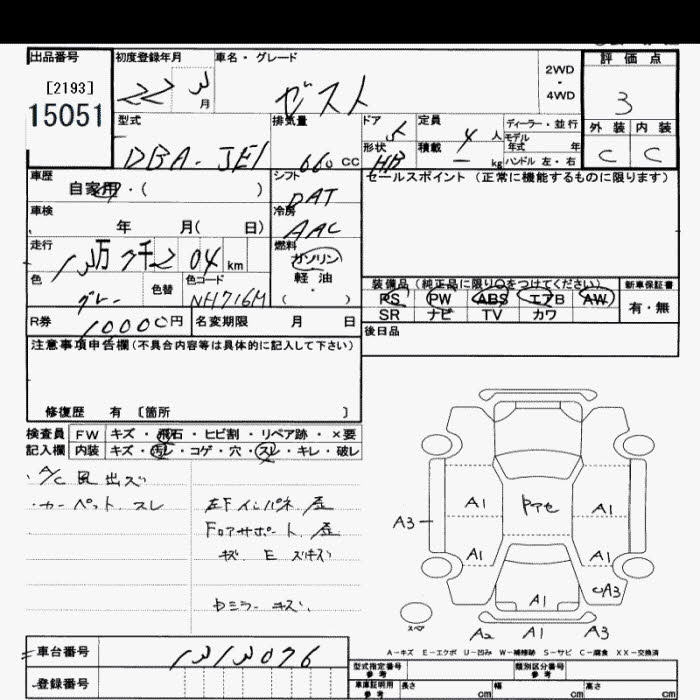 出品番号 初度登録年月 車名・グレード 評価点
[2193] 2WD
15051 22 3 月 ゼスト ・ 4WD 3
型式 排気量 ドア 5 定員 4 人 ディーラー・並行 外装 内装
モデル年式 年
DBA-JE1 660 CC 形状 HB 積載 ー kg ハンドル 左・右 C C
車歴 シフト セールスポイント (正常に機能するものに限ります)
自家用・( ) DAT
車検 冷房
年 月( 日) AAC
走行 燃料
13万7千204 km ガソリン
色 色替 色コード 軽油 装備品 (純正品に限り○をつけてください) 新車保証書
グレー NH716M ( ) PS PW ABS エアB AW 有・無
R券 10000円 名変期限 月 日 SR ナビ TV カワ
後日品
注意事項申告欄 (不具合内容等は具体的に記入して下さい)
修復歴 有 〔箇所 〕
検査員 FW キズ・飛石・ヒビ割・リペア跡・×要
記入欄 内装 キズ・汚レ・コゲ・穴・スレ・キレ・破レ
・A/C 風出ズ
・カーペット スレ 左Fインパネ
Fロアサポート
A1 A1
A3
A1 A1
A3
A1
スペア A2 A1 A3
A-キズ E-エクボ U-凹み W-補修跡 S-サビ C-腐食 XX-交換済
車台番号 1313076 型式指定番号 参考 類別区分番号 参考
登録番号 車庫証明用 参考 長さ cm 幅 cm 高さ cm